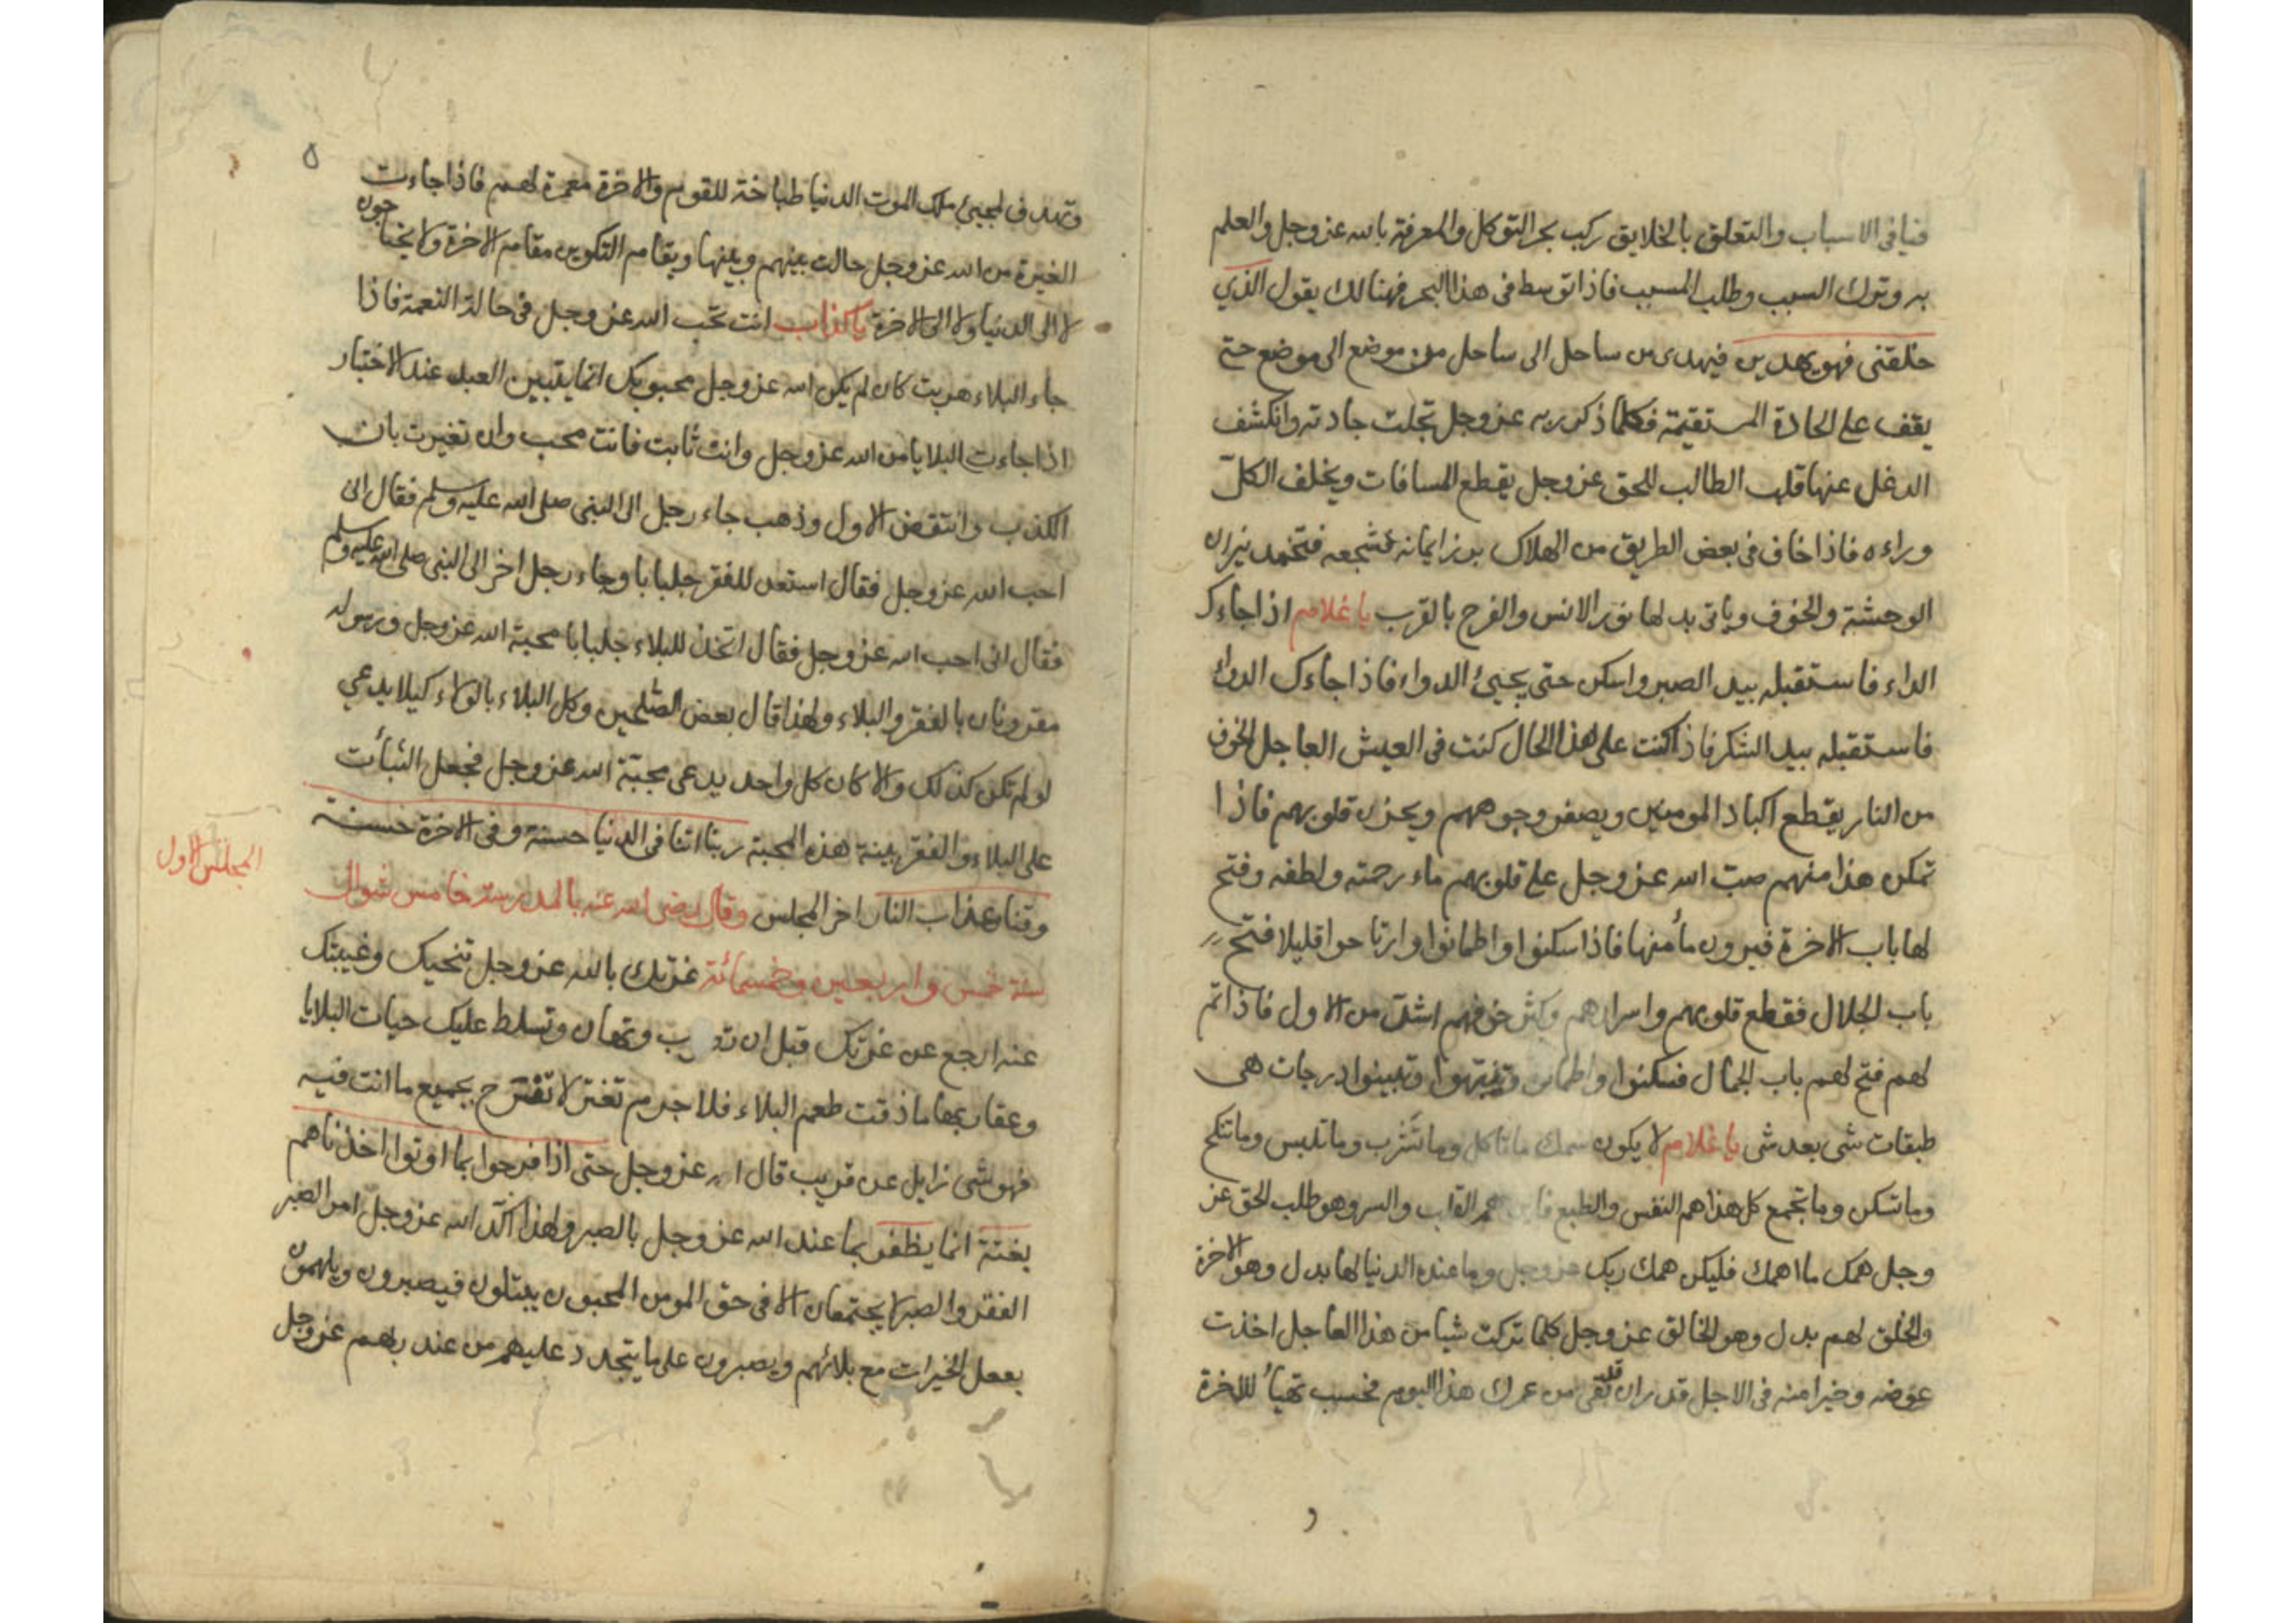 فيافي الاسباب والتعلق بالخلايق ركب بحر التوكل والمعرفة بالله عز وجل والعلم
به وترك السبب وطلب المسبب فاذا توسط في هذا البحر فهنالك يقول الذي
خلقني فهو يهدين فيهدى من ساحل الى ساحل من موضع الى موضع حتى
يقف على الجادة المستقيمة فكلما ذكر ربه عز وجل تجلت جادته وانكشف
الدغل عنها قلب الطالب للحق عز وجل يقطع المسافات ويخلف الكل
وراءه فاذا خاف في بعض الطريق من الهلاك برز ايمانه فشجعه فتخمد نيران
الوحشة والخوف وياتي بدلها نور الانس والفرح بالقرب يا غلام اذا جاءك
الداء فاستقبله بيد الصبر واسكن حتى يجيئ الدواء فاذا جاءك الدواء
فاستقبله بيد الشكر فاذا كنت على هذا الحال كنت في العيش العاجل الخوف
من النار يقطع اكباد المومنين ويصفر وجوههم ويحزن قلوبهم فاذا
تمكن هذا منهم صب الله عز وجل على قلوبهم ماء رحمته ولطفه وفتح
لها باب الاخرة فيرون مأمنها فاذا سكنوا واطمانوا وارتاحوا قليلا فتح
باب الجلال فقطع قلوبهم واسرارهم وكثر خوفهم اشد من الاول فاذا تم
لهم فتح لهم باب الجمال فسكنوا واطمانوا وتنبهوا وتبينوا درجات هى
طبقات شى بعد شى يا غلام لا يكون همك ما تاكل وما تشرب وما تلبس وما تنكح
وما تسكن وما تجمع كل هذا هم النفس والطبع فاين هم القلب والسر وهو طلب الحق عز
وجل همك ما اهمك فليكن همك ربك عز وجل وما عنده الدنيا لها بدل وهو الاخرة
والخلق لهم بدل وهو الخالق عز وجل كلما تركت شيا من هذا العاجل اخذت
عوضه وخيرا منه في الاجل قدر ان قد بقى من عمرك هذا اليوم فحسب تهيأ للاخرة
٥
وتهدف لمجيئ ملك الموت الدنيا طباخة للقوم والاخرة معمرة لهم فاذا جاءت
الغيرة من الله عز وجل حالت بينهم وبينها ويقام التكوين مقام الاخرة ولا يحتاجون
لا الى الدنيا ولا الى الاخرة يا كذاب انت تحب الله عز وجل في حالة النعمة فاذا
جاء البلاء هربت كان لم يكن الله عز وجل محبوبك انما يتبين العبد عند الاختبار
اذا جاءت البلايا من الله عز وجل وانت ثابت فانت محب وان تغيرت بان
الكذب وانتقض الاول وذهب جاء رجل الى النبي صلى الله عليه وسلم فقال انى
احب الله عز وجل فقال استعد للفقر جلبابا وجاء رجل اخر الى النبي صلى الله عليه وسلم
فقال انى احب الله عز وجل فقال اتخذ للبلاء جلبابا محبة الله عز وجل ورسوله
مقرونان بالفقر والبلاء ولهذا قال بعض الصلحين وكل البلاء بالولاء كيلا يدعي
لو لم تكن كذلك والا كان كل واحد يدعى محبة الله عز وجل فجعل الثبات
على البلاء والفقر بينة هذه المحبة ربنا اتنا في الدنيا حسنة وفي الاخرة حسنة
وقنا عذاب النار اخر المجلس وقال رضى الله عنه بالمدرسة خامس شوال
المجلس الاول
سنة خمس واربعين وخمسمائة غرتك بالله عز وجل تنحيك وغيبتك
عنه ارجع عن غرتك قبل ان تضرب وتهان وتسلط عليك حيات البلايا
وعقاربها ما ذقت طعم البلاء فلا جرم تغتر لا تفرح بجميع ما انت فيه
فهو شى زايل عن قريب قال الله عز وجل حتى اذا فرحوا بما اوتوا اخذناهم
بغتة انما يظفر بما عند الله عز وجل بالصبر ولهذا اكد الله عز وجل امر الصبر
الفقر والصبر لا يجتمعان الا في حق المومن المحبون يبتلون فيصبرون ويلهمون
بفعل الخيرات مع بلائهم ويصبرون على ما يتجدد عليهم من عند ربهم عز وجل